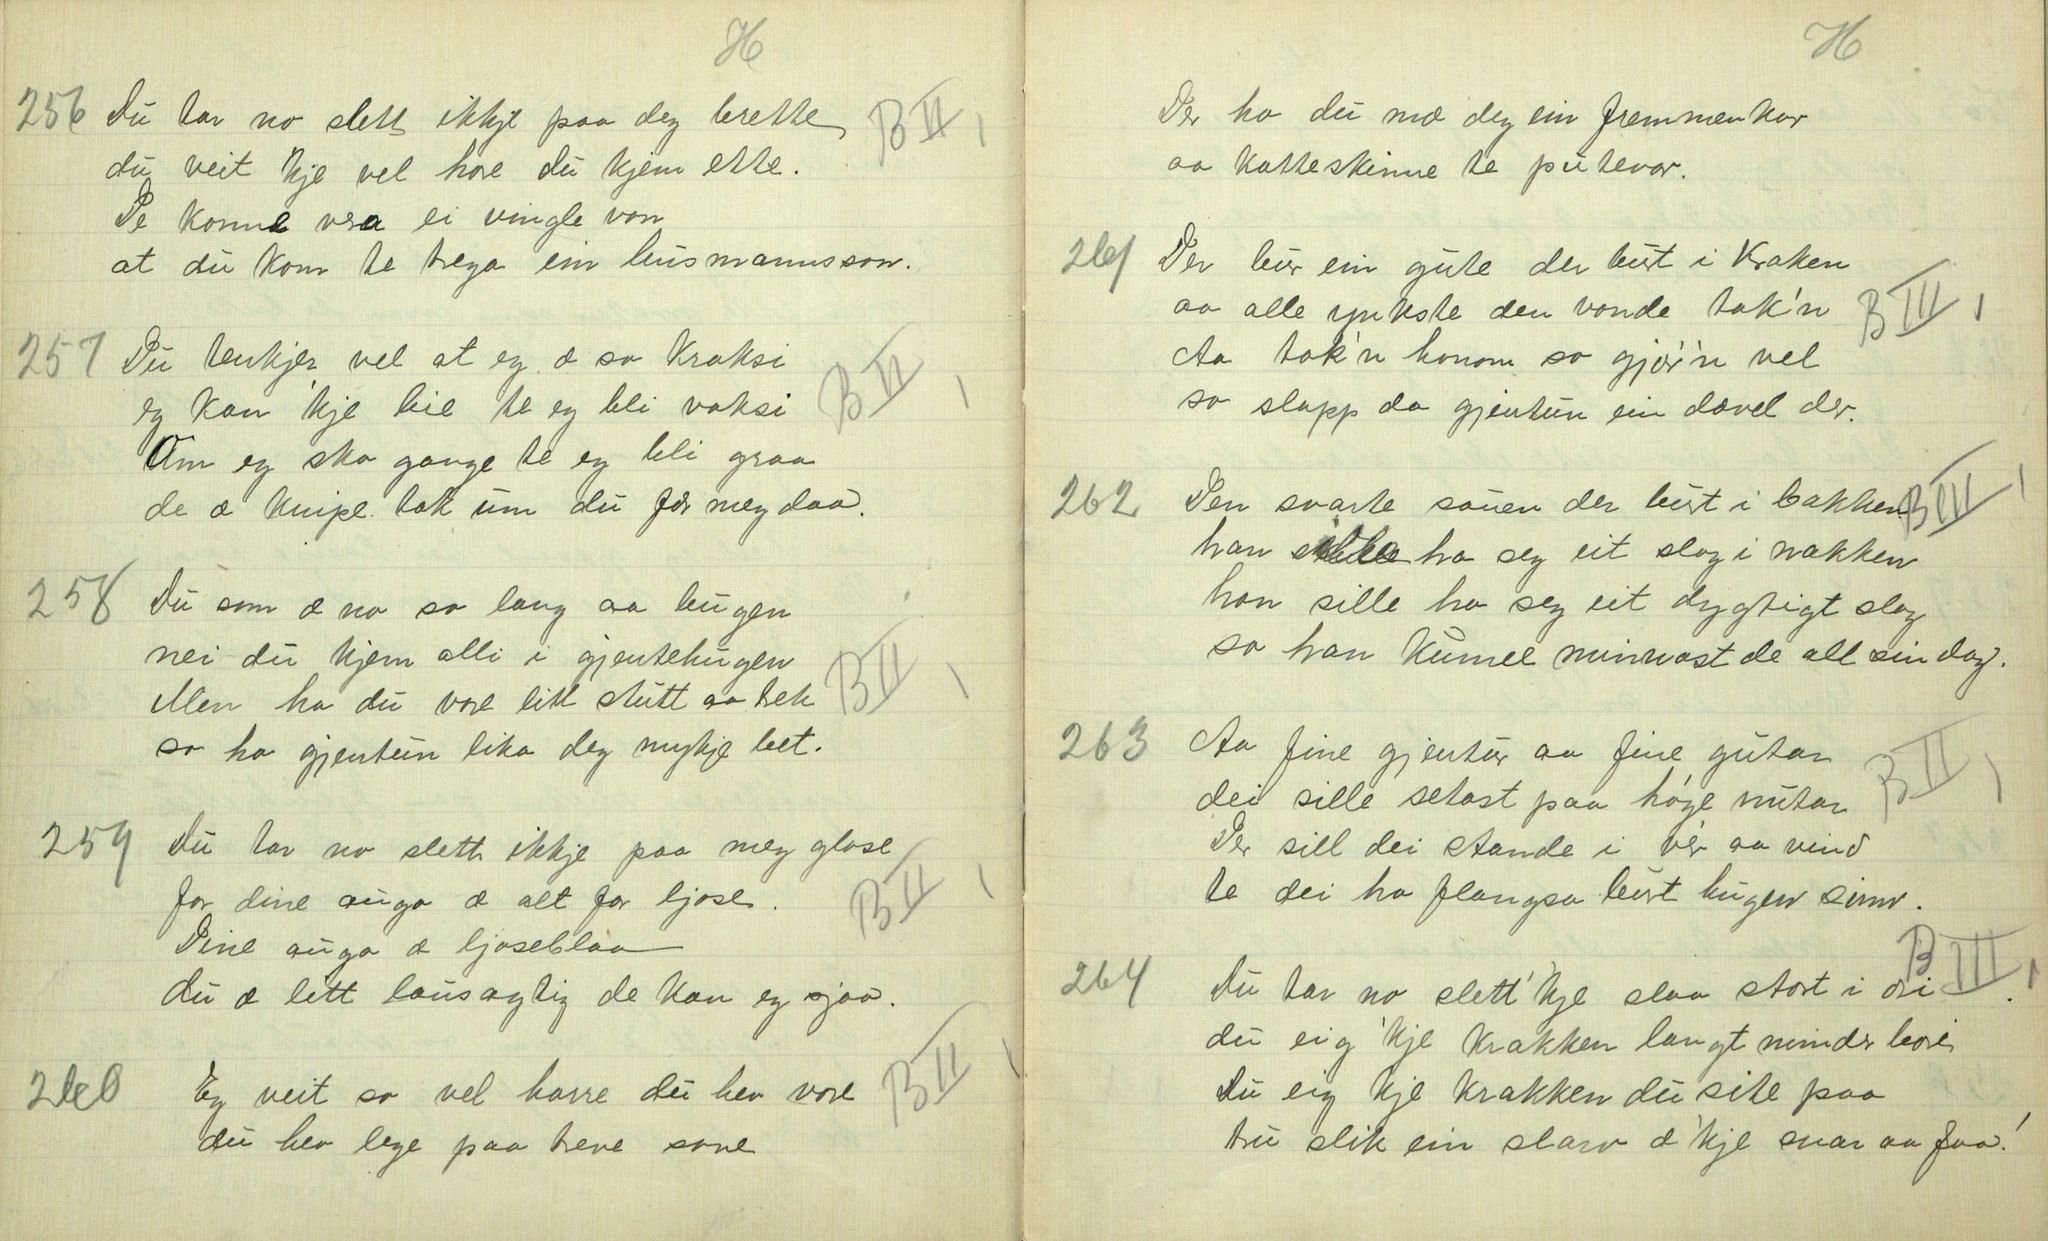 H
256 Du tar no slett ikkje paa deg brette B II
du veit kje vel hore du kjem ette.
De konne vera ei vingle von
at du kom te trega ein husmannsson.
257 Du tenkjer vel at eg æ so kraksi B II
eg kan 'kje bie te eg bli vaksi
Um eg ska gange te eg bli graa
de æ knipe tak um du fær meg daa.
258 Du som æ no so lang aa bugen
nei du kjem alli i gjentehugen B II
Men ha du vore litt stutt aa trek
so ha gjentun lika deg mykje bet.
259 Du tar no slett ikkje paa meg glose
for dine augo æ alt for ljose. B II
Dine augo æ ljoseblaa
du æ litt lausagtig de kan eg sjaa.
260 Eg veit so vel horre du hev vore B II
du hev lege paa trene sove
H
Der ha du mæ deg ein fremmenkar
aa katteskinne te putevar.
261 Der bur ein gute der burt i Kraken
aa alle ynkste den vonde tak'n B III
Aa tak'n honom so gjør'n vel
so slapp da gjentun ein dævel der.
262 Den svarte sauen der burt i bakken B III
han sille ha seg eit slag i nakken
han sille ha seg eit dygtigt slag
so han kunne minnast de all sin dag.
263 Aa fine gjentur aa fine gutar B II
dei sille setast paa høge nutar
Der sill dei stande i vér aa vind
te dei ha flangsa burt hugen sinn.
264 Du tar no slett 'kje slaa stort i ori B III
du eig 'kje krakken langt mindr bori
Du eig kje krakken du site paa
tru slik ein slarv æ 'kje snar aa faa!